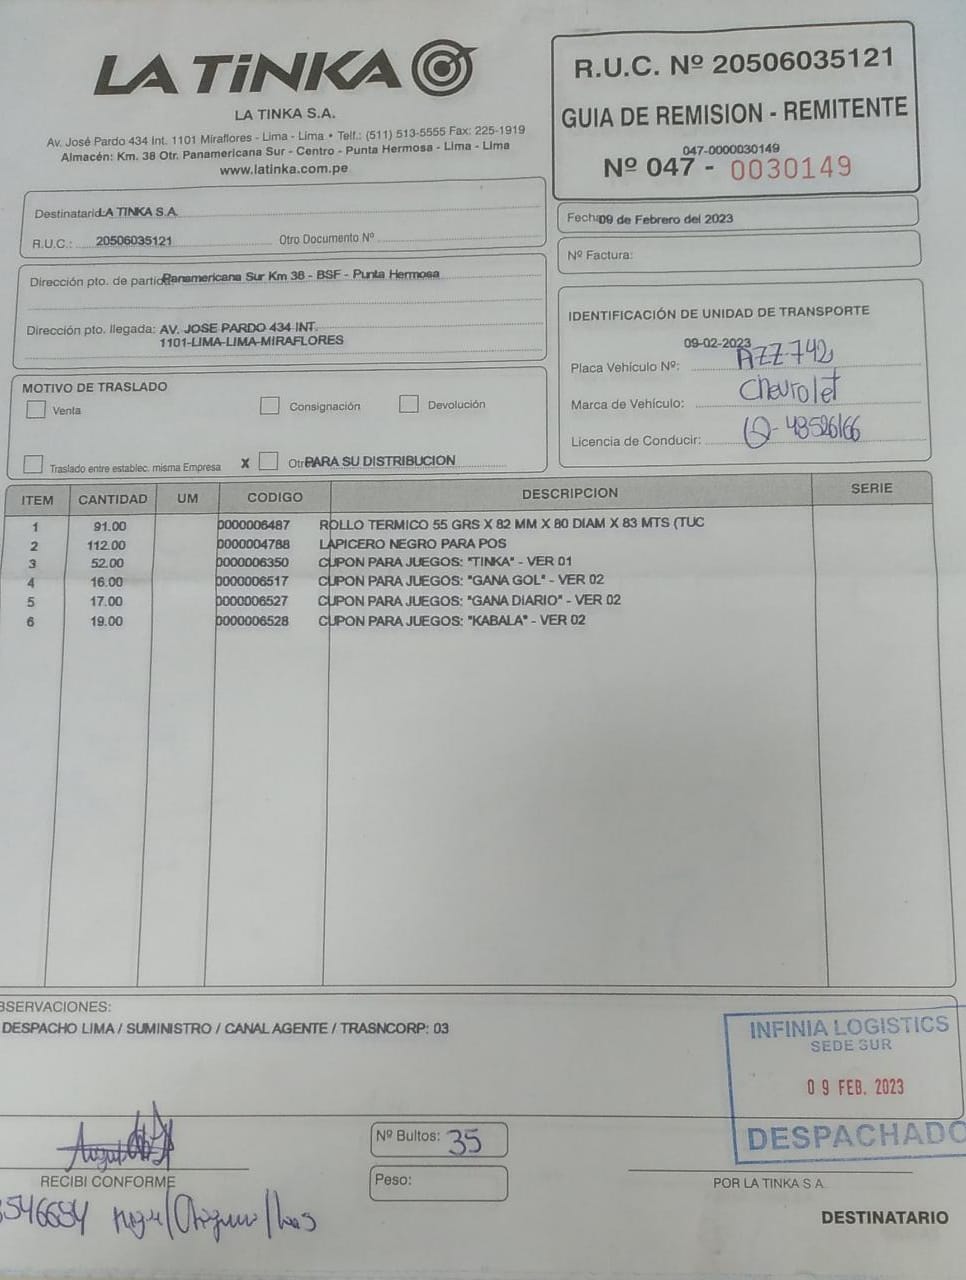 LA TiNKA
LA TINKA S.A.
Av. José Pardo 434 Int. 1101 Miraflores - Lima - Lima • Telf.: (511) 513-5555 Fax: 225-1919
Almacén: Km. 38 Otr. Panamericana Sur - Centro - Punta Hermosa - Lima - Lima
www.latinka.com.pe
R.U.C. Nº 20506035121
GUIA DE REMISION - REMITENTE
047-0000030149
Nº 047 - 0030149
Destinatario: LA TINKA S.A.
R.U.C.: 20506035121 Otro Documento Nº
Fecha: 09 de Febrero del 2023
Nº Factura:
Dirección pto. de partida: Panamericana Sur Km 38 - BSF - Punta Hermosa
Dirección pto. llegada: AV. JOSE PARDO 434 INT.
1101-LIMA-LIMA-MIRAFLORES
IDENTIFICACIÓN DE UNIDAD DE TRANSPORTE
09-02-2023
Placa Vehículo Nº: AZZ-742
Marca de Vehículo: Chevrolet
Licencia de Conducir: Q-43526166
MOTIVO DE TRASLADO
Venta Consignación Devolución
Traslado entre establec. misma Empresa X Otr PARA SU DISTRIBUCION
ITEM CANTIDAD UM CODIGO DESCRIPCION SERIE
1 91.00 0000006487 ROLLO TERMICO 55 GRS X 82 MM X 80 DIAM X 83 MTS (TUC
2 112.00 0000004788 LAPICERO NEGRO PARA POS
3 52.00 0000006350 CUPON PARA JUEGOS: "TINKA" - VER 01
4 16.00 0000006517 CUPON PARA JUEGOS: "GANA GOL" - VER 02
5 17.00 0000006527 CUPON PARA JUEGOS: "GANA DIARIO" - VER 02
6 19.00 0000006528 CUPON PARA JUEGOS: "KABALA" - VER 02
BSERVACIONES:
DESPACHO LIMA / SUMINISTRO / CANAL AGENTE / TRASNCORP: 03
INFINIA LOGISTICS
SEDE SUR
09 FEB. 2023
DESPACHADO
Nº Bultos: 35
RECIBI CONFORME
Peso:
POR LA TINKA S.A.
3546684
DESTINATARIO